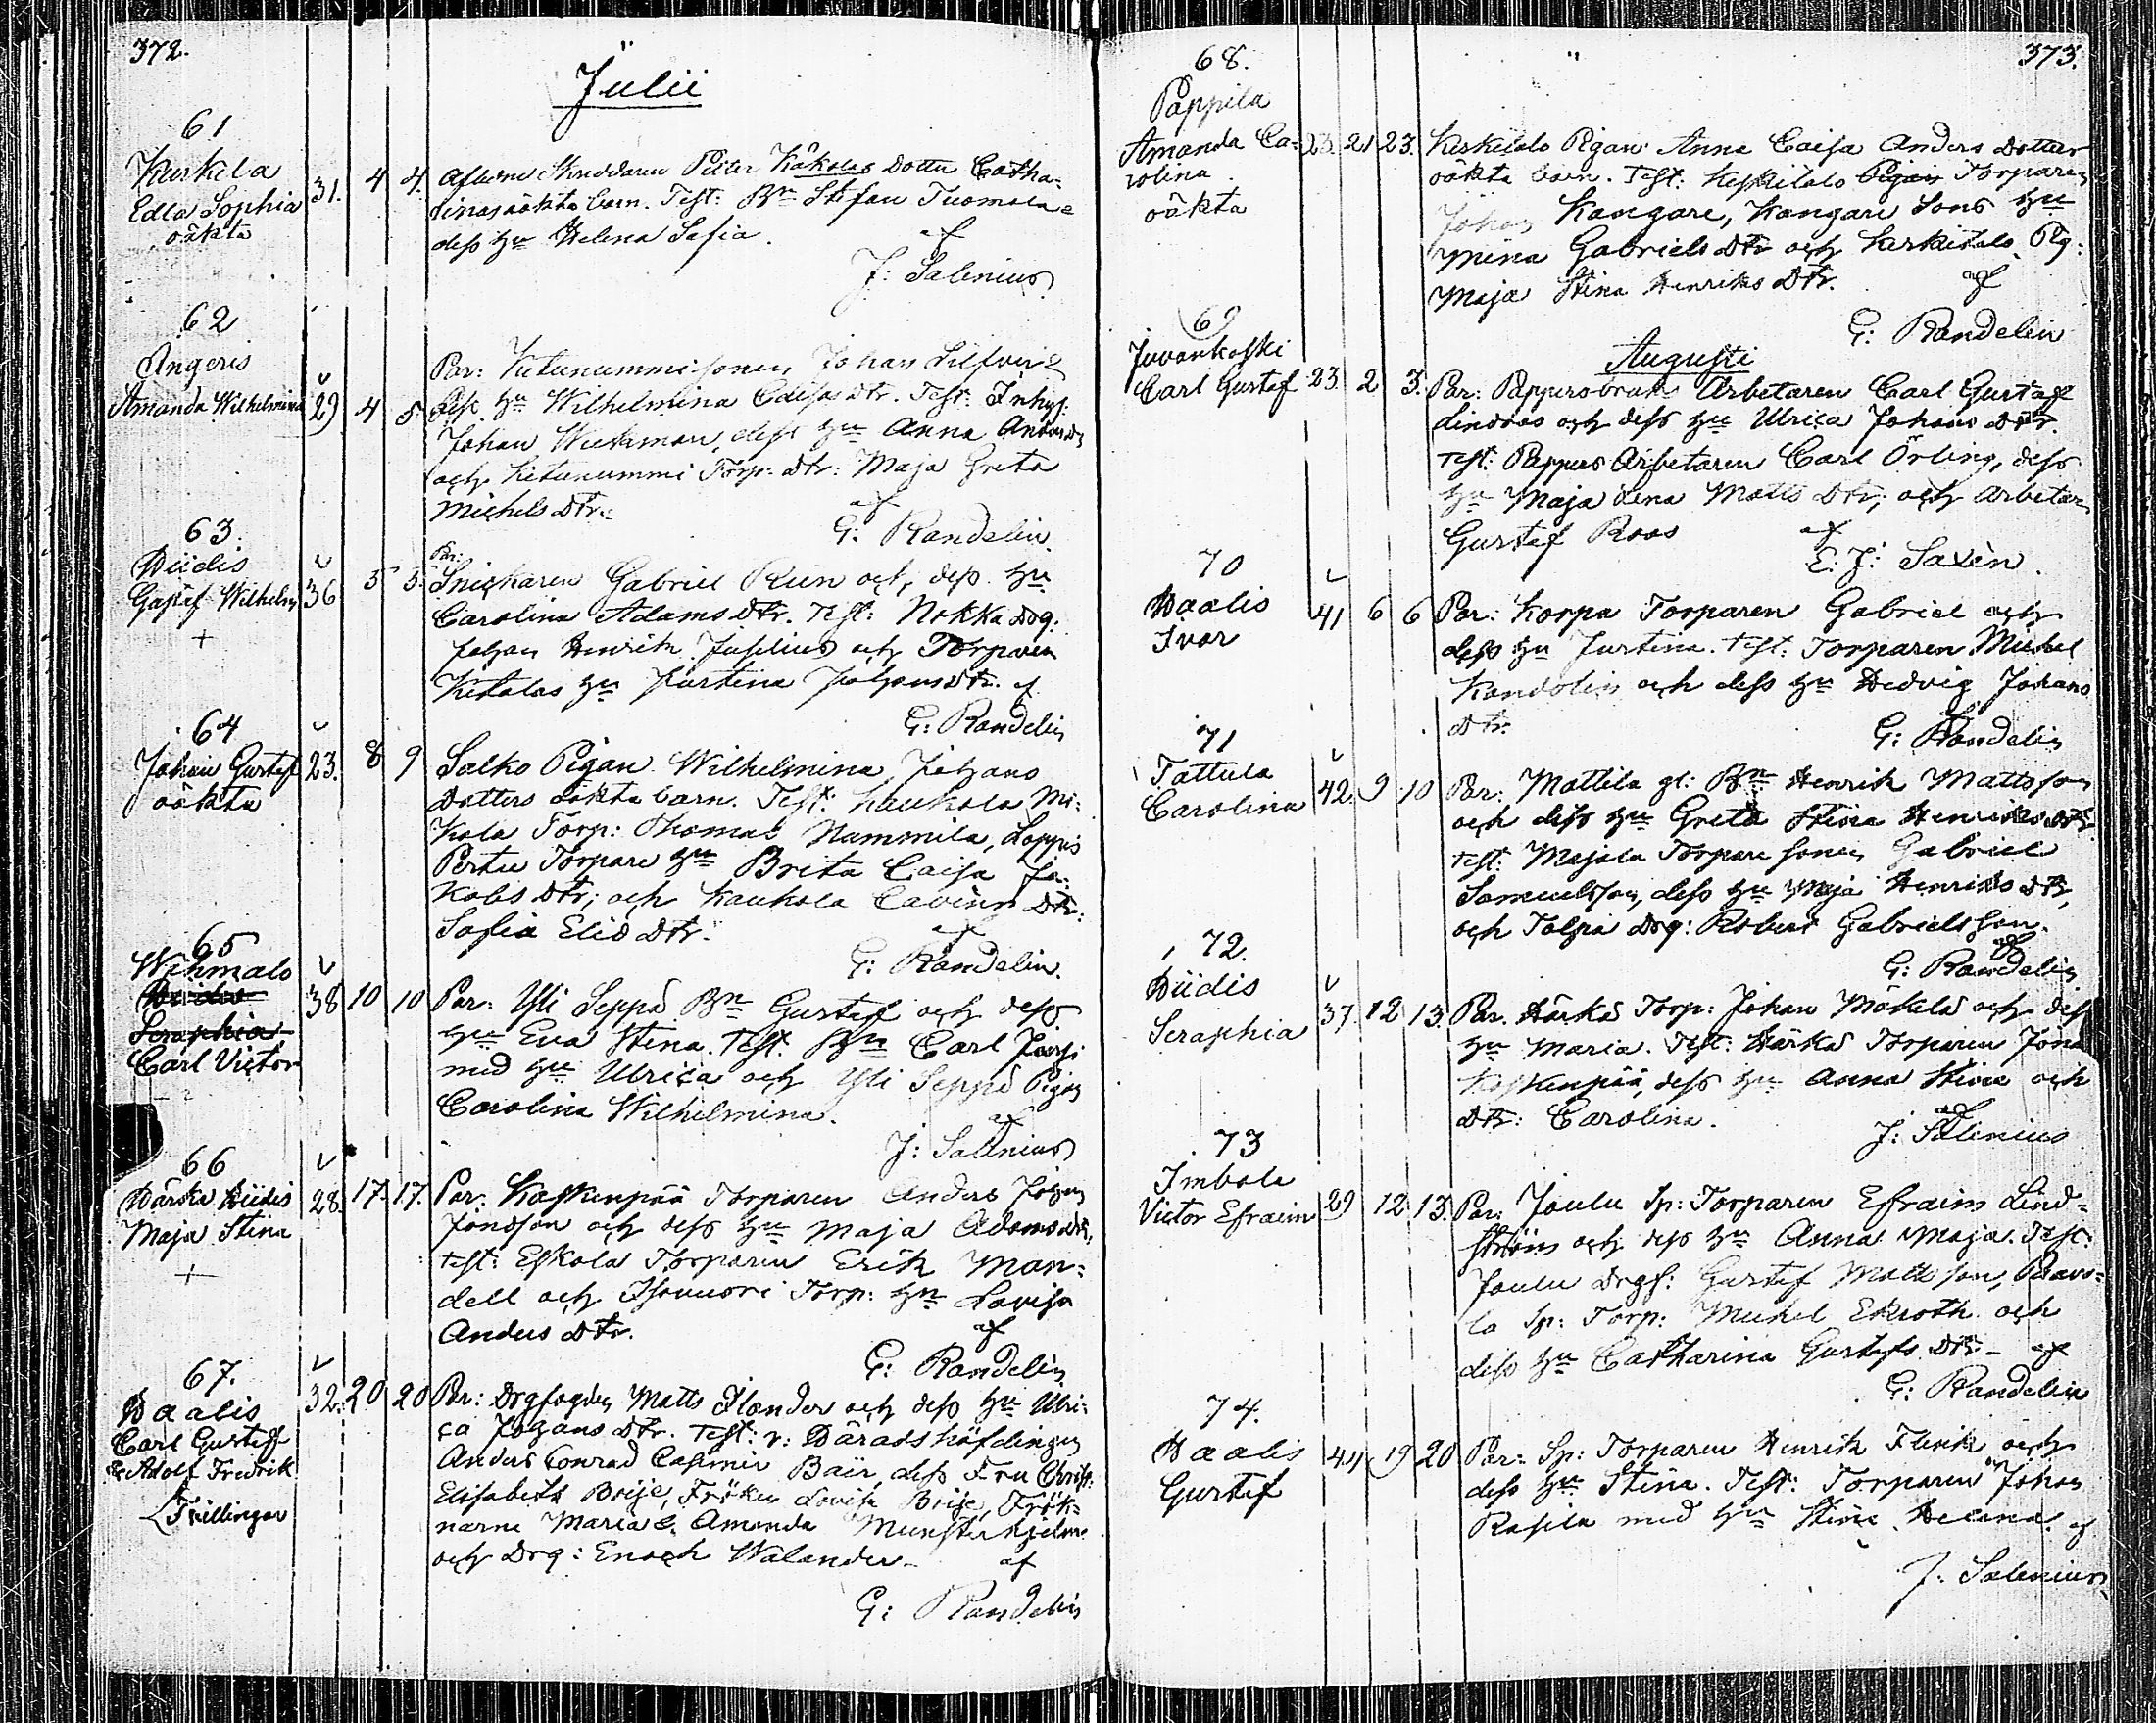 372.
Julii
61
Kurkela
Edla Sophia
oäkta
31. 4 4.
Aflidne Skreddaren Petter Käkelas Dotter Catha=
rinas oäkta barn. Test: Bn Stefan Tuomola &
dess hu Helena Sofia. af
J: Salenius
62
Angeris
Amanda Wilhelmina
29 4 5
Par: Ketunummi sonen Johan Silfver &
dess hu Wilhelmina dtr. Test: Inhys:
Johan Wickman, dess hu Anna Anders D
och Ketunummi Torp: dtr: Maja Greta
Michels Dtr: af
G: Randelin.
63.
Hiidis
Gustaf Wilhelm
+
36 5 5.
Par:
Snickaren Gabriel Rén och dess hu
Carolina Adams Dtr. Test: Nokka Drg.
Johan Henrik Juselius och Torparen
Ketolas hu Justina Johans Dtr. af
G: Randelin
64
Johan Gustaf
oäkta
23. 8 9
Salko Pigan Wilhelmina Johans
Dotters oäkta barn. Test: Kaukola Mi=
kola Torp: Thomas Nummila, Loppis
Perttu Torpare hu Brita Caisa Ja=
kobs Dtr; och Kaukola Dtr:
Sofia Elis Dtr: af
G: Randelin.
65
Wihmalo
Seraphia
Carl Victor
38 10 10
Par: Yli Seppä Bn Gustaf och dess
hu Eva Stina. Test. Bn Carl
med hu Ulrica och Yli Seppä Pigan
Carolina Wilhelmina. af
J: Salenius
66
Härkä Hiidis
Maja Stina
+
28. 17. 17.
Par: Koskenpää Torparen Anders Johan
Jonsson och dess hu Maja Adams dtr,
test: Eskola Torparen Erik Man=
dell och Isovuori Torp: hu Lovisa
Anders Dtr. af
G: Randelin
67.
Haalis
Carl Gustaf
& Adolf Fredrik
Tvillingar
32. 20 20
Par: Drgfogden Matts Ilander och dess hu Ulri=
ca Johans Dtr. Test: v: Häradshöfdingen
Anders Conrad Casimir Bäir, dess Fru Christ:
Elisabeth Boije, Fröken Lovisa Boije, Frök=
narne Maria & Amanda Munsterhjelm
och Drg: Enoch Walander. af
G: Randelin
373.
68.
Pappila
Amanda Ca=
rolina
oäkta
23. 21 23.
Kerkilalo Pigan Anna Caisa Anders Dotters
oäkta barn. Test: Keskitalo Pigan Torparen
Johan Kangare, Kangare Sons hu
Mina Gabriels Dtr och Keskitalo Pig:
Maja Stina Henriks Dtr. af
G: Randelin
Augusti
69
Juvankoski
Carl Gustaf
23. 2 3.
Par: Pappersbruks Arbetaren Carl Gustaf
Lindroos och dess hu Ulrica Johans Dtr.
Test: Pappers Arbetaren Carl Örling, dess
hu Maja Lena Matts Dtr; och arbetar
Gustaf Roos af
E: J: Saxèn.
70
Haalis
Ivar
41 6 6
Par: Korpa Torparen Gabriel och
dess hu Justina. Test: Torparen Michel
Kandolin och dess hu Hedvig Johans
Dtr. af
G: Randelin
71
Tattula
Carolina
42. 9 10
Par: Mattila gl: Bn Henrik Mattsson
och dess hu Greta Stina Henriks Dtr.
test: Majala Torpare sonen Gabriel
Samuelsson, dess hu Maja Henriks Dtr,
och Tolpa Drg: Robert Gabrielsson.
af
G: Randelin
72.
Hiidis
Seraphia
37. 12 13.
Par. Härkä Torp: Johan Mäkelä och dess
hu Maria. Test: Härkä Torparen Jona
Koskenpää, dess hu Anna Stina och
Dtr: Carolina. af
J: Salenius
73
Imbola
Victor Efraim
29 12 13.
Par: Joulu Sp: Torparen Efraim Lind=
ström och dess hu Anna Maja. Test:
Joulu Drgs: Gustaf Matts son, Paavo=
la Sp: Torp: Michel Ekroth och
dess hu Catharina Gustafs Dtr - af
G: Randelin
74.
Haalis
Gustaf
44 19 20
Par: Sp: Torparen Henrik Flink och
dess hu Stina. Test: Torparen Johan
Rasila med hu Stina Helena. af
J: Salenius